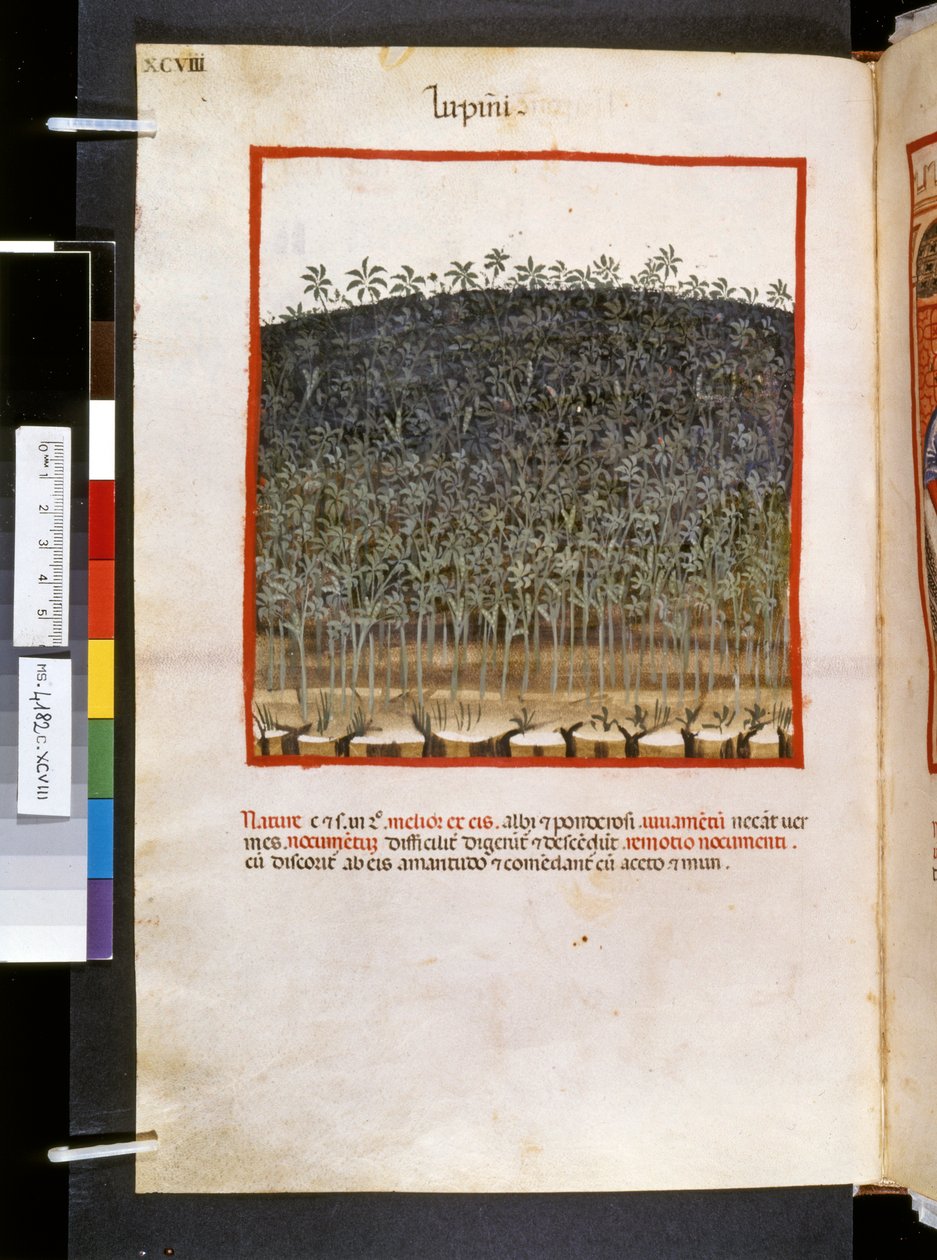 XCVIII
Lupiñi.
Nature c ⁊ s. in 2º. melior ex eis. albi ⁊ ponderosi. iuuamētū necāt uer
mes. nocumētū difficilit̄ digerūt̄ ⁊ descēdūt. remotio nocumenti.
cū discorit̄ ab eis amaritudo ⁊ comēdant̄ cū aceto ⁊ muri.
0 mm 1 2 3 4 5
MS. 4182 c. XCVIII